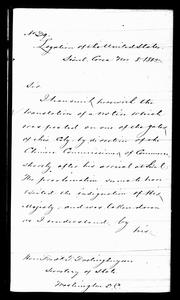 Legation of the United States
Seoul, Corea Nov 8 1882
Sir
I transmit herewith the
translation of a notice which
was posted on one of the gates
of this City by direction of the
Chinese Commissioner of Commerce
shortly after his arrival at Seoul.
The proclamation seems to have
excited the indignation of His
Majesty, and was taken down
as I understand by
his
Secretary of State
Washington D.C.